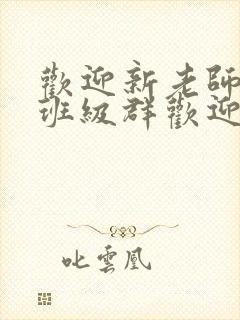 歡迎新老師
班級群歡迎
叱雲凰